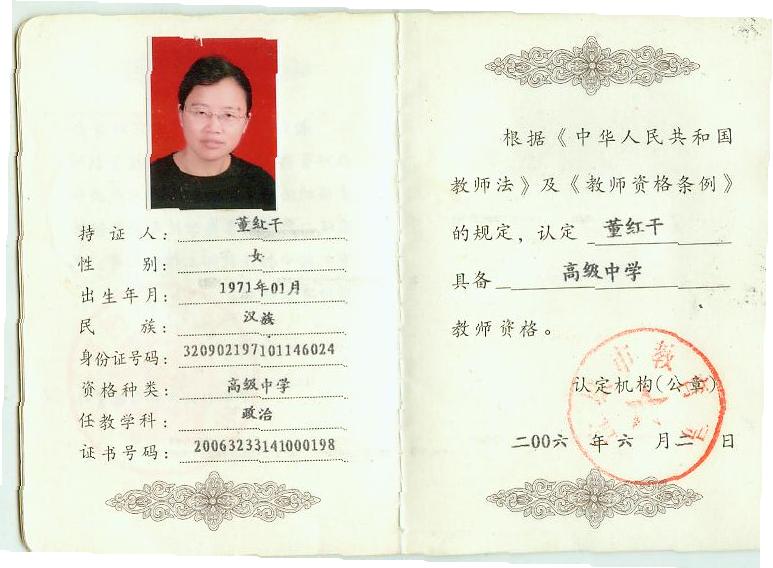 持证人：董红干
性别：女
出生年月：1971年01月
民族：汉族
身份证号码：320902197101146024
资格种类：高级中学
任教学科：政治
证书号码：20063233141000198
根据《中华人民共和国
教师法》及《教师资格条例》
的规定，认定 董红干
具备 高级中学
教师资格。
市教
认定机构(公章)
二00六 年六 月二 日